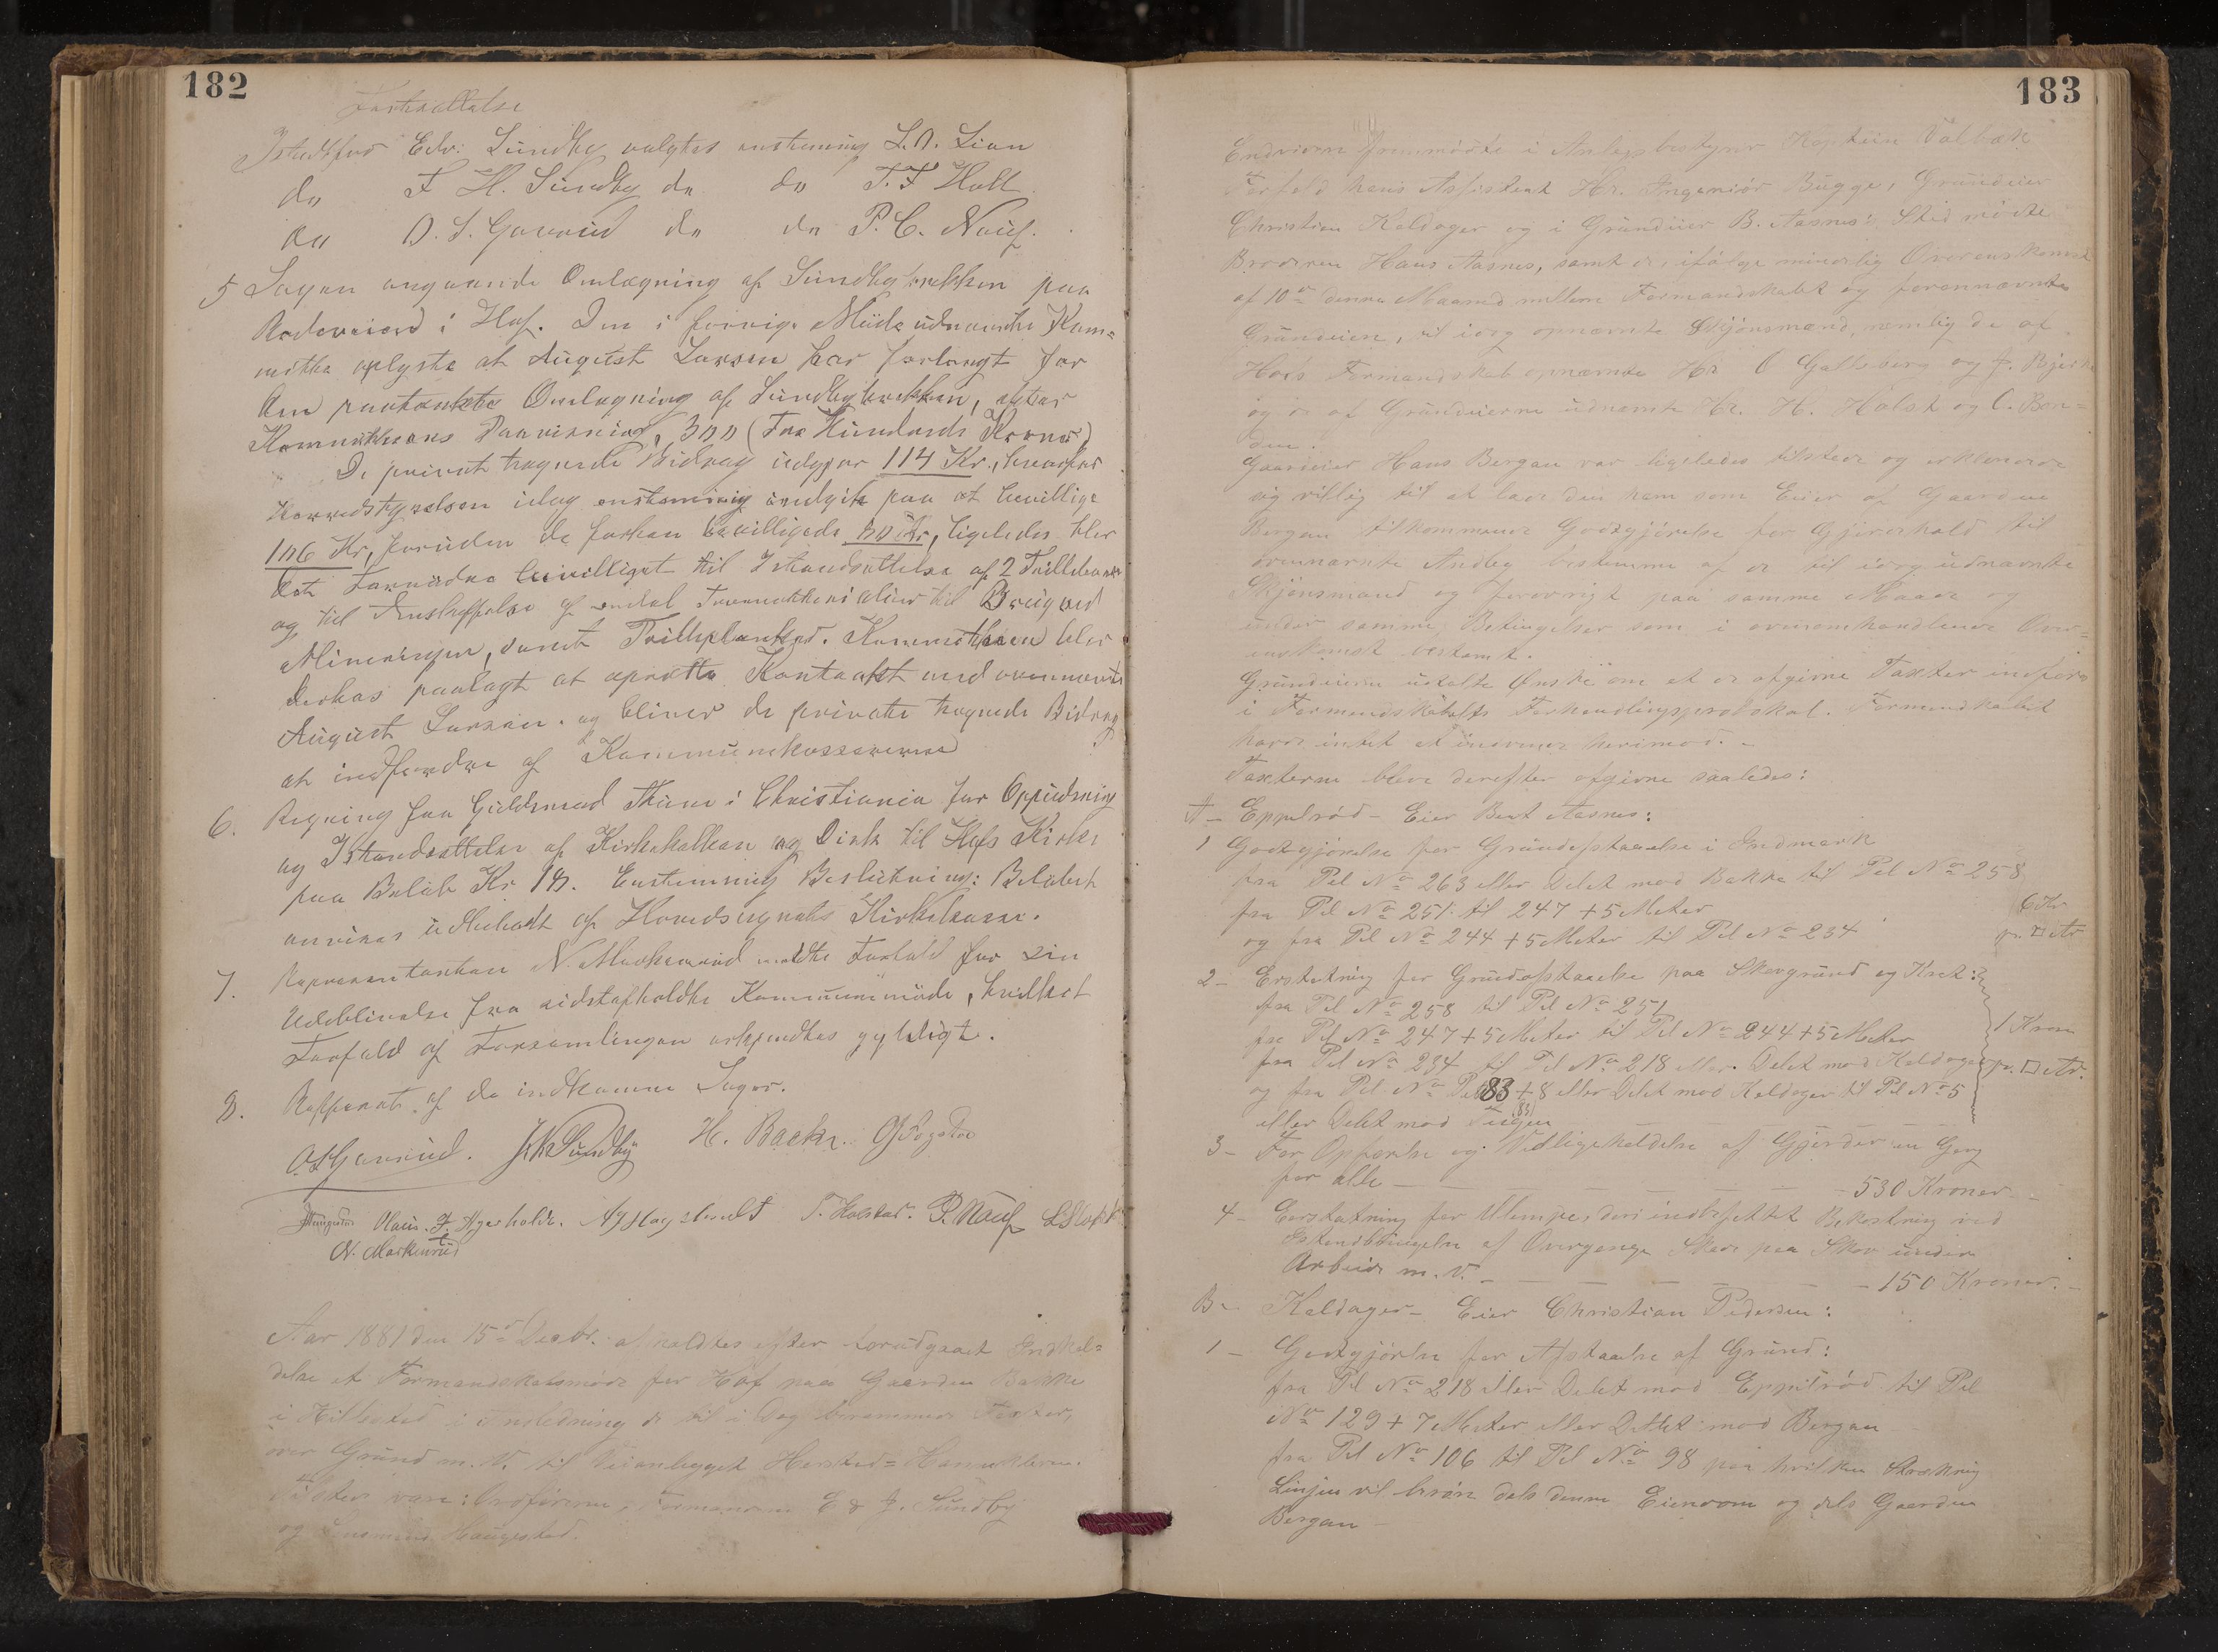 182
Fortsættelse
Istedetfor Edv: Sundby valgtes enstemmig L.A. Lian
do F H. Sundby do do T. F Holt
do O. S. Gavrud do do P. C. Nauf.
5 Sagen angaaende Omlægning af Sundbybakken paa
Rodeveien i Hof. Den i forrige Møde udnævnte Kom=
mitte oplyste at August Larsen har forlangt for
den paatænkte Omlægning af Sundbybakken, efter
Kommitteens Paavisning, 300 (Tre Hundrede Kroner)
De privat tegnede Bidrag udgjør 114 Kr., hvorfor
Herredstyrelsen idag enstemmig indgik paa at bevillige
106 Kr, foruden de forhen bevilligede 80 Kr, ligeledes blev
det Fornødne bevilliget til Istandsættelse af 2 Trillebører
og til Anskaffelse af endel Træmaterialier til Brug ved
Mineringen, samt Trilleplanker. Kommitteen blev
derhos paalagt at oprette Kontrakt med ovennævnte
August Larsen. og bliver de private tegnede Bidrag
at indfordre af Kommunekassereren
6. Regning fra Guldsmed Thune i Christiania for Oppudsning
og Istandsættelse af Kirkekalken og Disk til Hofs Kirke
paa Beløb Kr 18. Enstemmig Beslutning: Beløbet
anvises udbetalt af Hovedsognets Kirkekasse.
7. Repræsentanten N. Markerud meldte Forfald for sin
Udeblivelse fra sidstafholdte Kommunemøde, hvilket
Forfald af Forsamlingen erkjendtes gyldigt.
8. Refferat af de indkomne Sager.
O.S. Gavrud. J.H. Sundby H. Backe.
Olaus. F. Agerholdt. T. Holstad. P. Nauf
N. Markerud
Aar 1881 den 15de Decbr. afholdtes efter forudgaaet Indkal=
delse et Formandskabsmøde for Hof paa Gaarden Bakke
i Hillestad i Anledning de til i Dag berammede Taxter,
over Grund m. V. til Veianlægget
Tilstede vare: Ordføreren, Formændene E & J. Sundby
og Haugestad.
183
Endvidere fremmødte i Anlægsbestyrer Kaptein Valbæk
Forfald hans Assistent Hr. Ingeniør Bugge, Grundeier
Christian Kaldager og i Grundeier B. Aasnes's Sted mødte
Broderen Hans Aasnes, samt de, ifølge mindelig Overenskomst
af 10de denne Maaned mellem Formandskabet og forannævnte
Grundeiere, til idag opnævnte Skjønsmænd, nemlig de af
Hofs Formandskab opnævnte Hr O Gallsberg og J. Bjerke
og de af Grundeierne udnævnte Hr. H. Holst og C. Bon=
den.
Gaardeier Hans Bergan var ligeledes tilstede og erklærede
sig villig til at lade den ham som Eier af Gaarden
Bergan tilkommende Godtgjørelse for Gjerdehold til
ovennævnte Anlæg bestemme af de til idag udnævnte
Skjønsmænd og forøvrigt paa samme Maade og
under samme Betingelser som i ovenomhandlende Over=
enskomst bestemt.
Grundeierne udtalte Ønske om at de afgivne Taxter indføres
i Formandskabets Forhandlingsprotokol. Formandskabet
havde intet at indvende herimod. –
Taxterne bleve derefter afgivne saaledes:
A – Eppelrød – Eier Bent Aasnes:
1 Godtgjørelse for Grundafstaaelse i Indmark
fra Pel No 263 eller Delet mod Bakke til Pel No 258
fra Pel No 251 til 247 + 5 Meter
og fra Pel No 244 + 5 Meter til Pel No 234
6 Kr
pr. □ Ar
2 – Erstatning for Grundafstaaelse paa Skovgrund og Krat:
fra Pel No 258 til Pel No 251
fra Pel No 247 + 5 Meter til Pel No 244 + 5 Meter
fra Pel No 234 til Pel No 218 eller Delet mod Kaldager
og fra Pel No Pel 83 + 8 eller Delet mod Kaldager til Pel No 5
(83)
eller Delet mod
1 Krone
pr. □ Ar.
3 – For Opførelse og Vedligeholdelse af Gjerder en Gang
for alle – – – – – – 530 Kroner –
4 – Erstatning for Ulempe, deri indbefattet Bekostning ved
Istandbringelse af Overgange Skade paa Skov under
Arbeide m. V. – – – – – – 150 Kroner. –
B – Kaldager – Eier Christian Pedersen:
1 – Godtgjørelse for Afstaaelse af Grund:
fra Pel No 218 eller Delet mod Eppelrød til Pel
No 129 + 7 Meter eller Delet mod Bergan
fra Pel No 106 til Pel No 98 paa hvilken Strækning
Linjen vil berøre dels denne Eiendom og dels Gaarden
Bergan –